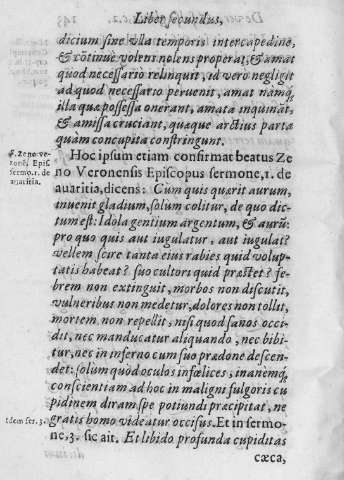 Liber secundus,
dicium sine vlla temporis intercapedine,
& cõtinuè volens nolens properat, & amat
quod necessariò relinquit, id verò negligit
ad quod necessario peruenit, amat namq́;
illa quæ possessa onerant, amata inquinãt,
& amissa cruciant, quæque arctius parta
quàm concupita constringunt.
Hoc ipsum etiam confirmat beatus Ze
S. Zeno ve-
ronẽ. Episc.
sermo. 1. de
auaritia.
no Veronensis Episcopus sermone, 1. de
auaritia, dicens: Cum quis quærit aurum,
inuenit gladium, solum colitur, de quo dic-
tum est: Idola gentium argentum, & aurũ:
pro quo quis aut iugulatur, aut iugulat?
vellem scire tanta eius rabies quid volup-
tatis habeat? suo cultori quid præstet? fe-
brem non extinguit, morbos non discutit,
vulneribus non medetur, dolores non tollit,
mortem non repellit, nisi quod sanos occi-
dit, nec manducatur aliquando, nec bibi-
tur, nec in inferno cum suo prædone descen-
det: solùm quòd oculos infœlices, inanémq́;
conscientiam ad hoc in maligni fulgoris cu
pidinem diram spe potiundi præcipitat, ne
gratis homo videatur occisus. Et in sermo-
Idem ser. 3.
ne, 3. sic ait. Et libido profunda cupiditas
cæca,